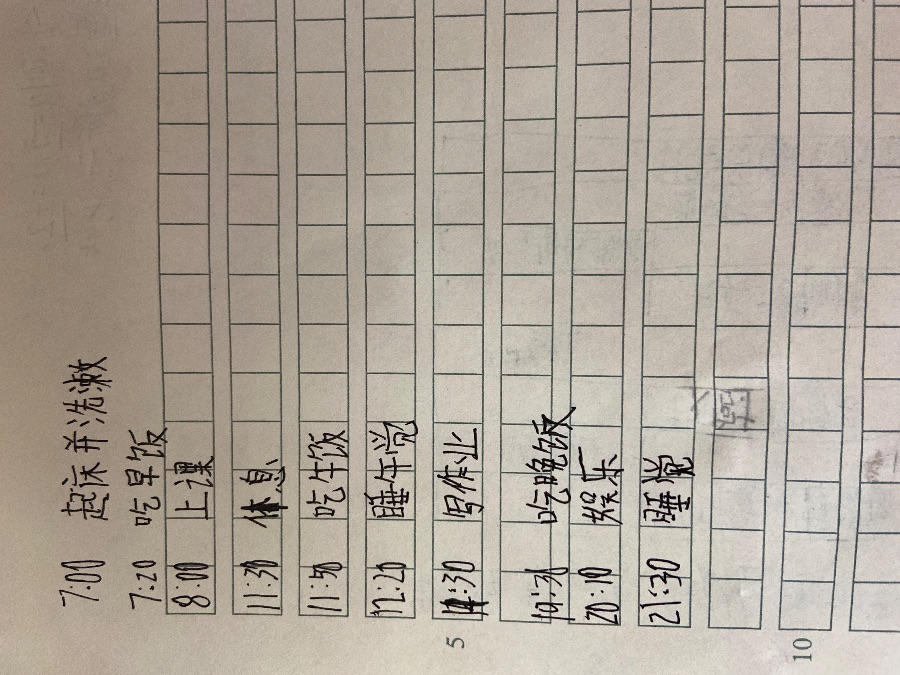 7:00 起床并洗漱
7:20 吃早饭
8:00 上课
11:30 休息
11:50 吃午饭
12:20 睡午觉
14:30 写作业
吃晚饭
20:10 娱乐
21:30 睡觉
5
10